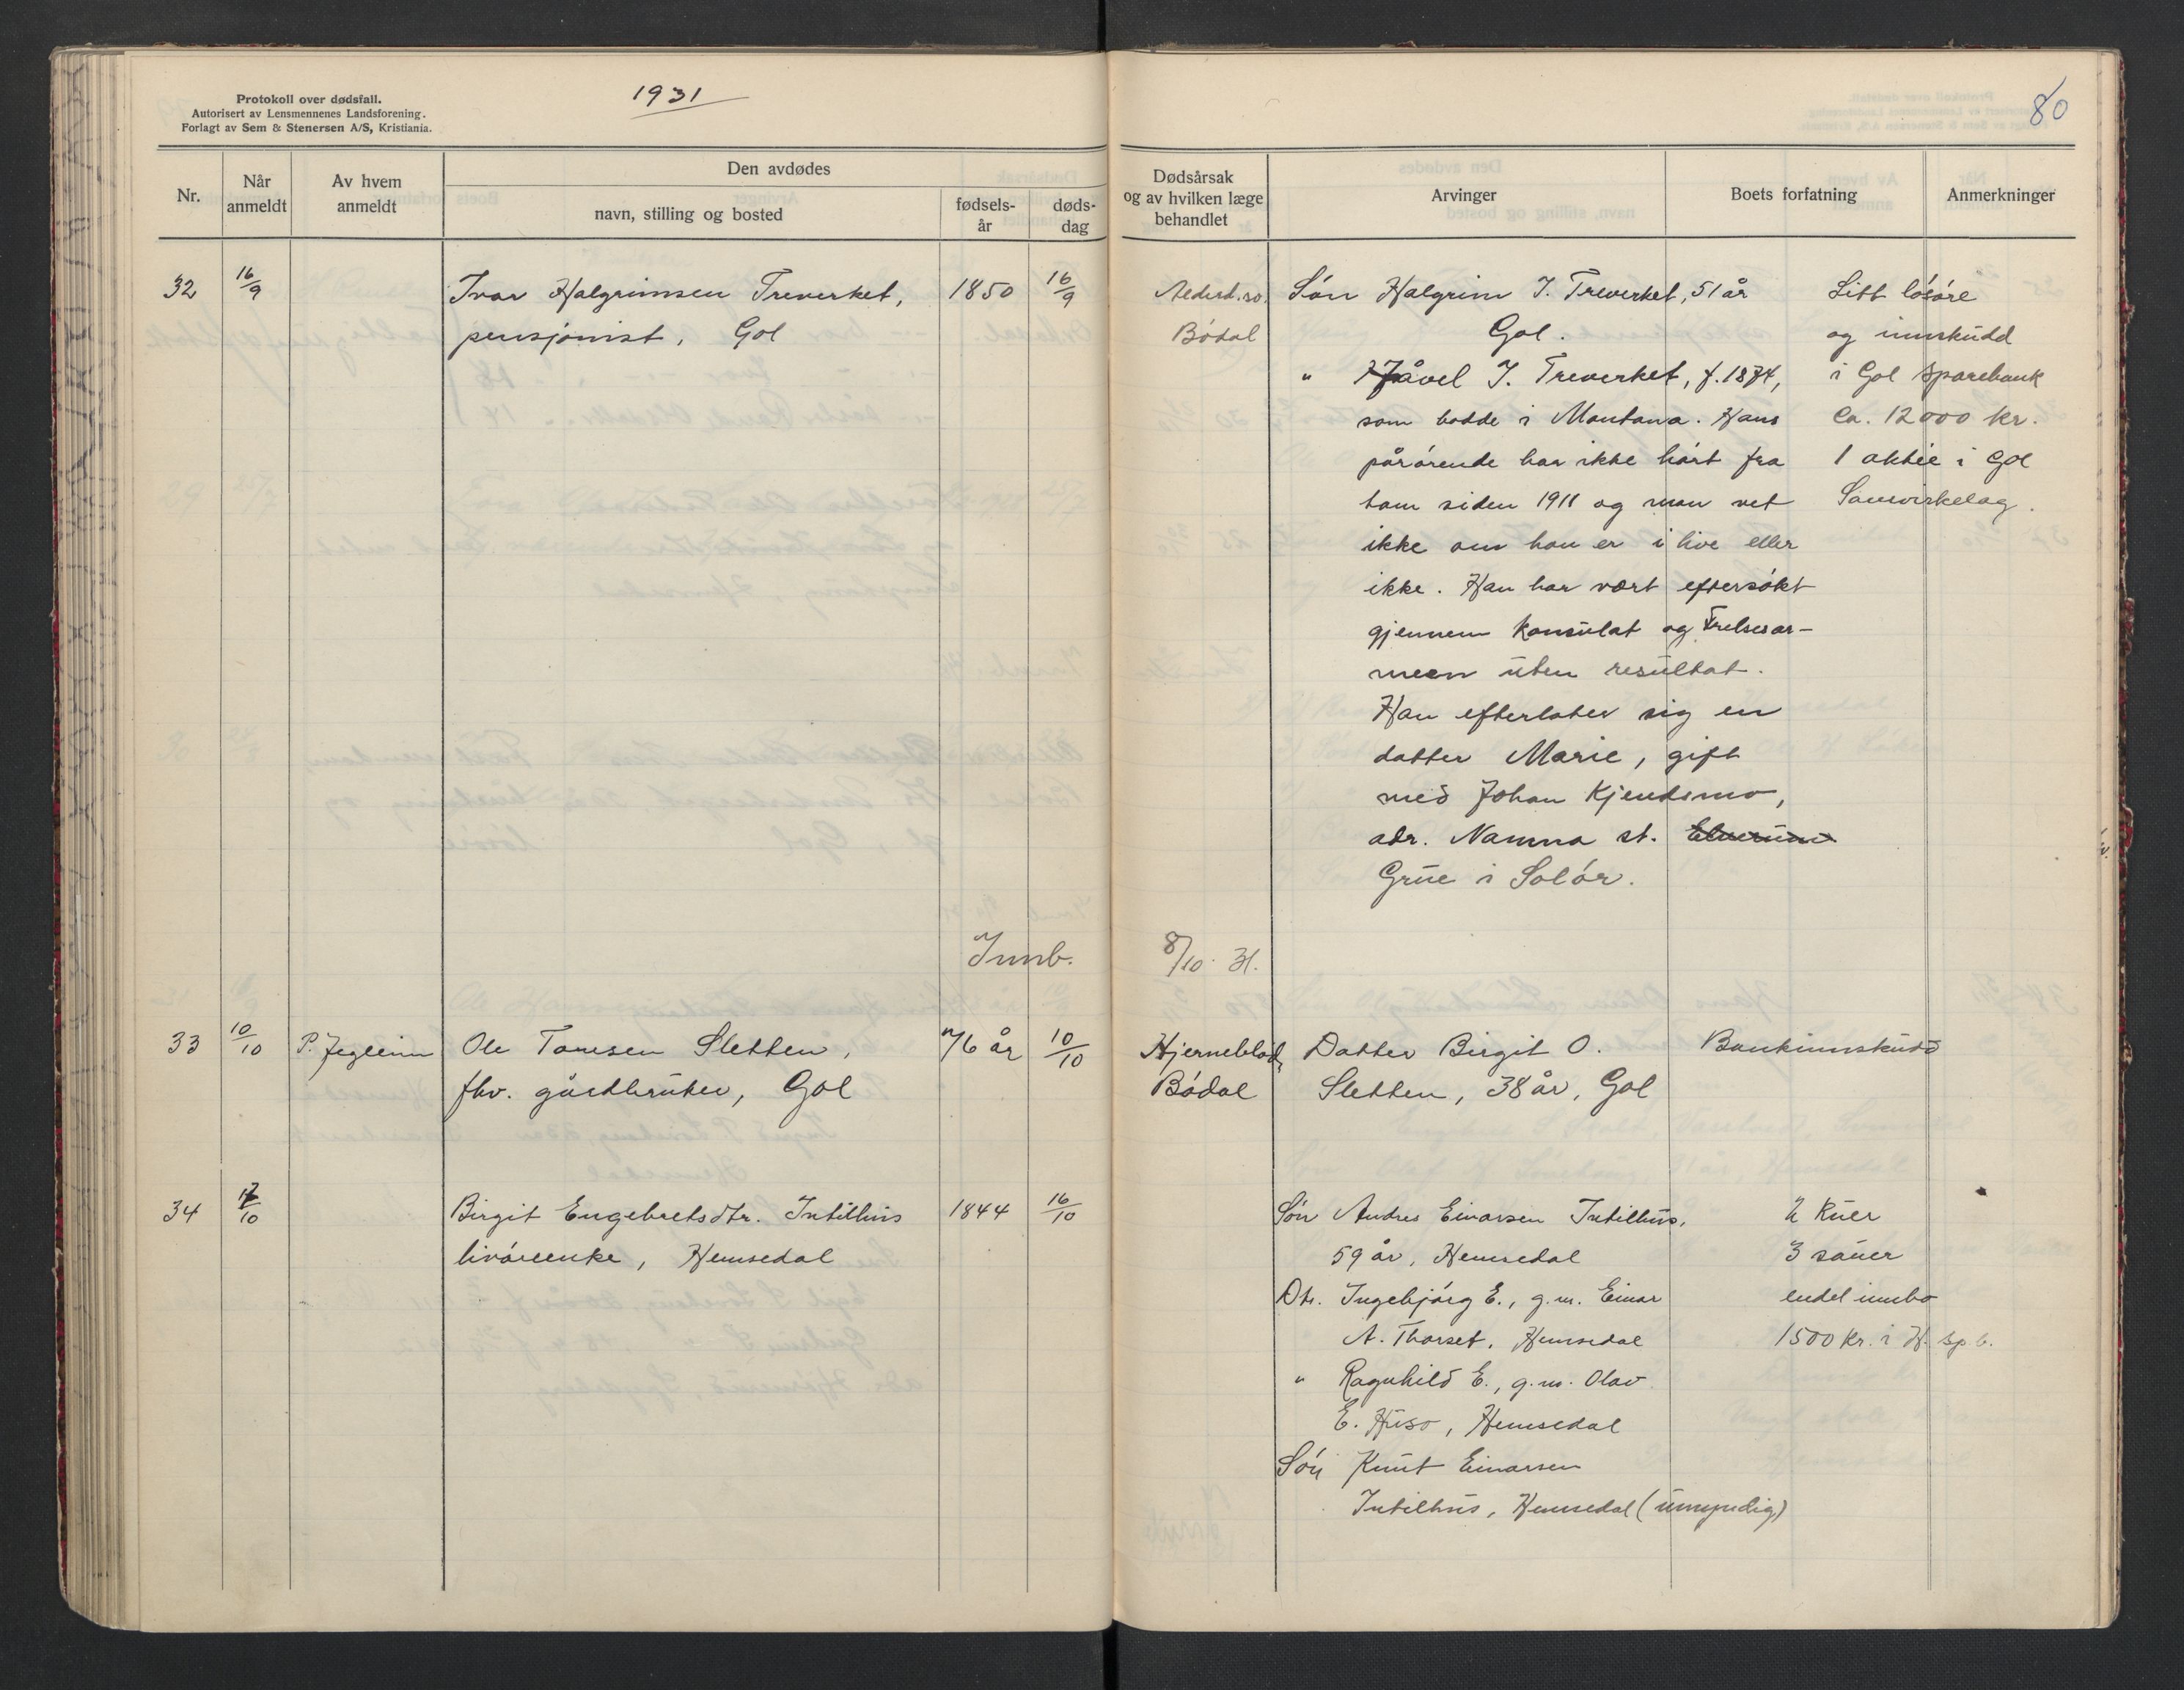 Protokoll over dødsfall.
Autorisert av Lensmennenes Landsforening.
Forlagt av Sem & Stenersen A/S, Kristiania.
1931
80
Nr.
Når anmeldt
Av hvem anmeldt
Den avdødes
navn, stilling og bosted
fødselsår
dødsdag
Dødsårsak
og av hvilken læge
behandlet
Arvinger
Boets forfatning
Anmerkninger
32 16/9 Ivar Halgrimsen Treverket, 1850 16/9
pensjonist, Gol
Bødal
Søn Halgrim I. Treverket, 51 år
Gol.
" Håvel I. Treverket, f. 1874,
som bodde i Montana. Hans
pårørende har ikke hørt fra
ham siden 1911 og man vet
ikke om han er i live eller
ikke. Han har vært eftersøkt
gjennem konsulat og Frelsesar-
meen uten resultat.
Han efterlater sig en
datter Marie, gift
med Johan Kjendsmo,
adr. Namna st. Elverum
Grue i Solør.
Litt løsøre
og innskudd
i Gol Sparebank
Ca. 12000 kr.
1 aktie i Gol
Samvirkelag.
Innb. 8/10 31.
33 10/10 P. Jegleim Ole Tomesen Sletten, 76 år 10/10
fhv. gårdbruker, Gol
Hjerneblødn
Bødal
Datter Birgit O.
Sletten, 38 år, Gol
Bankinnskudd
34 17/10 Birgit Engebretsdtr. Intilhus 1844 16/10
livøreenke, Hemsedal
Søn Andres Einarsen Intilhus,
59 år, Hemsedal
Dtr. Ingebjørg E., g.m. Einar
A. Thorset, Hemsedal
" Ragnhild E., g.m. Olav
E. Huso, Hemsedal
Søn Knut Einarsen
Intilhus, Hemsedal (umyndig)
2 kuer
3 sauer
endel innbo
1500 kr. i H. sp.b.